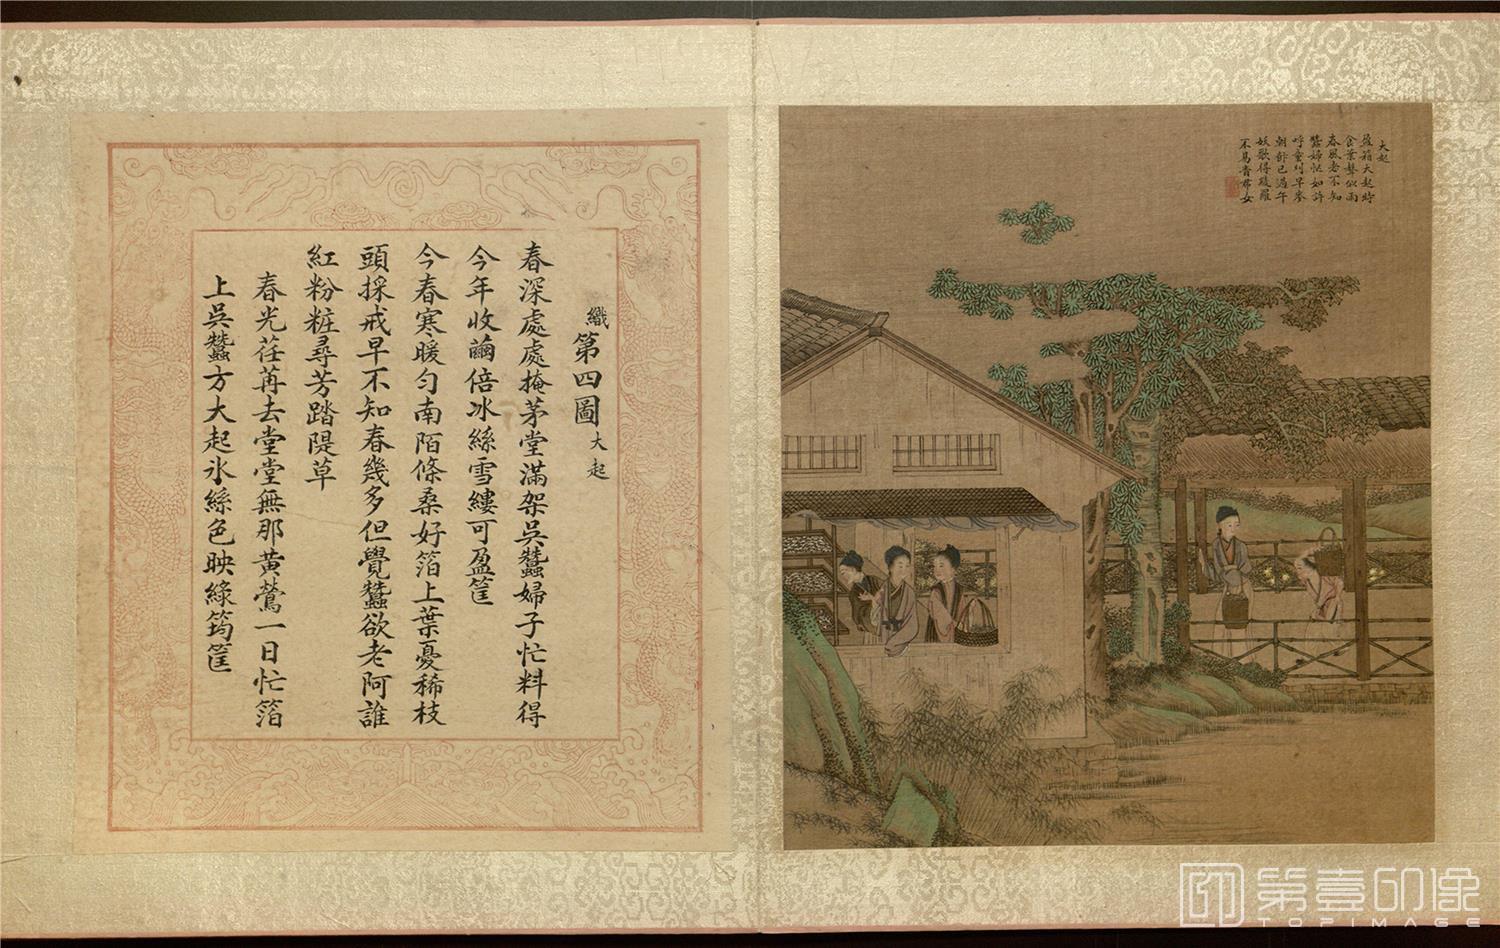 織第四圖大起
春深處處掩茅堂滿架吳蠶婦子忙料得
今年收繭倍冰絲雪縷可盈筐
今春寒暖勻南陌條桑好箔上葉憂稀枝
頭採戒早不知春幾多但覺蠶欲老阿誰
紅粉粧尋芳踏隄草
春光荏苒去堂堂無那黃鶯一日忙箔
上吳蠶方大起氷絲色映綠筠筐
大起
盈箱大起時
食葉聲似雨
春風老不知
蠶婦忙如許
呼童刈早麥
朝飰已過午
妖歌得綾羅
不易青裙女
第壹印像
TOPIMAGE